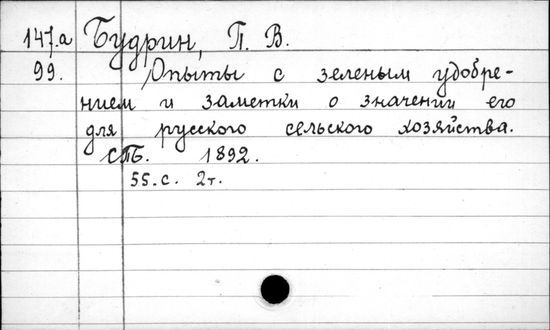 147.а Будрин, П. В.
99. Опыты с зеленым удобре-
нием и заметки о значении его
для русского сельского хозяйства.
СПБ. 1892.
55.с. 2т.